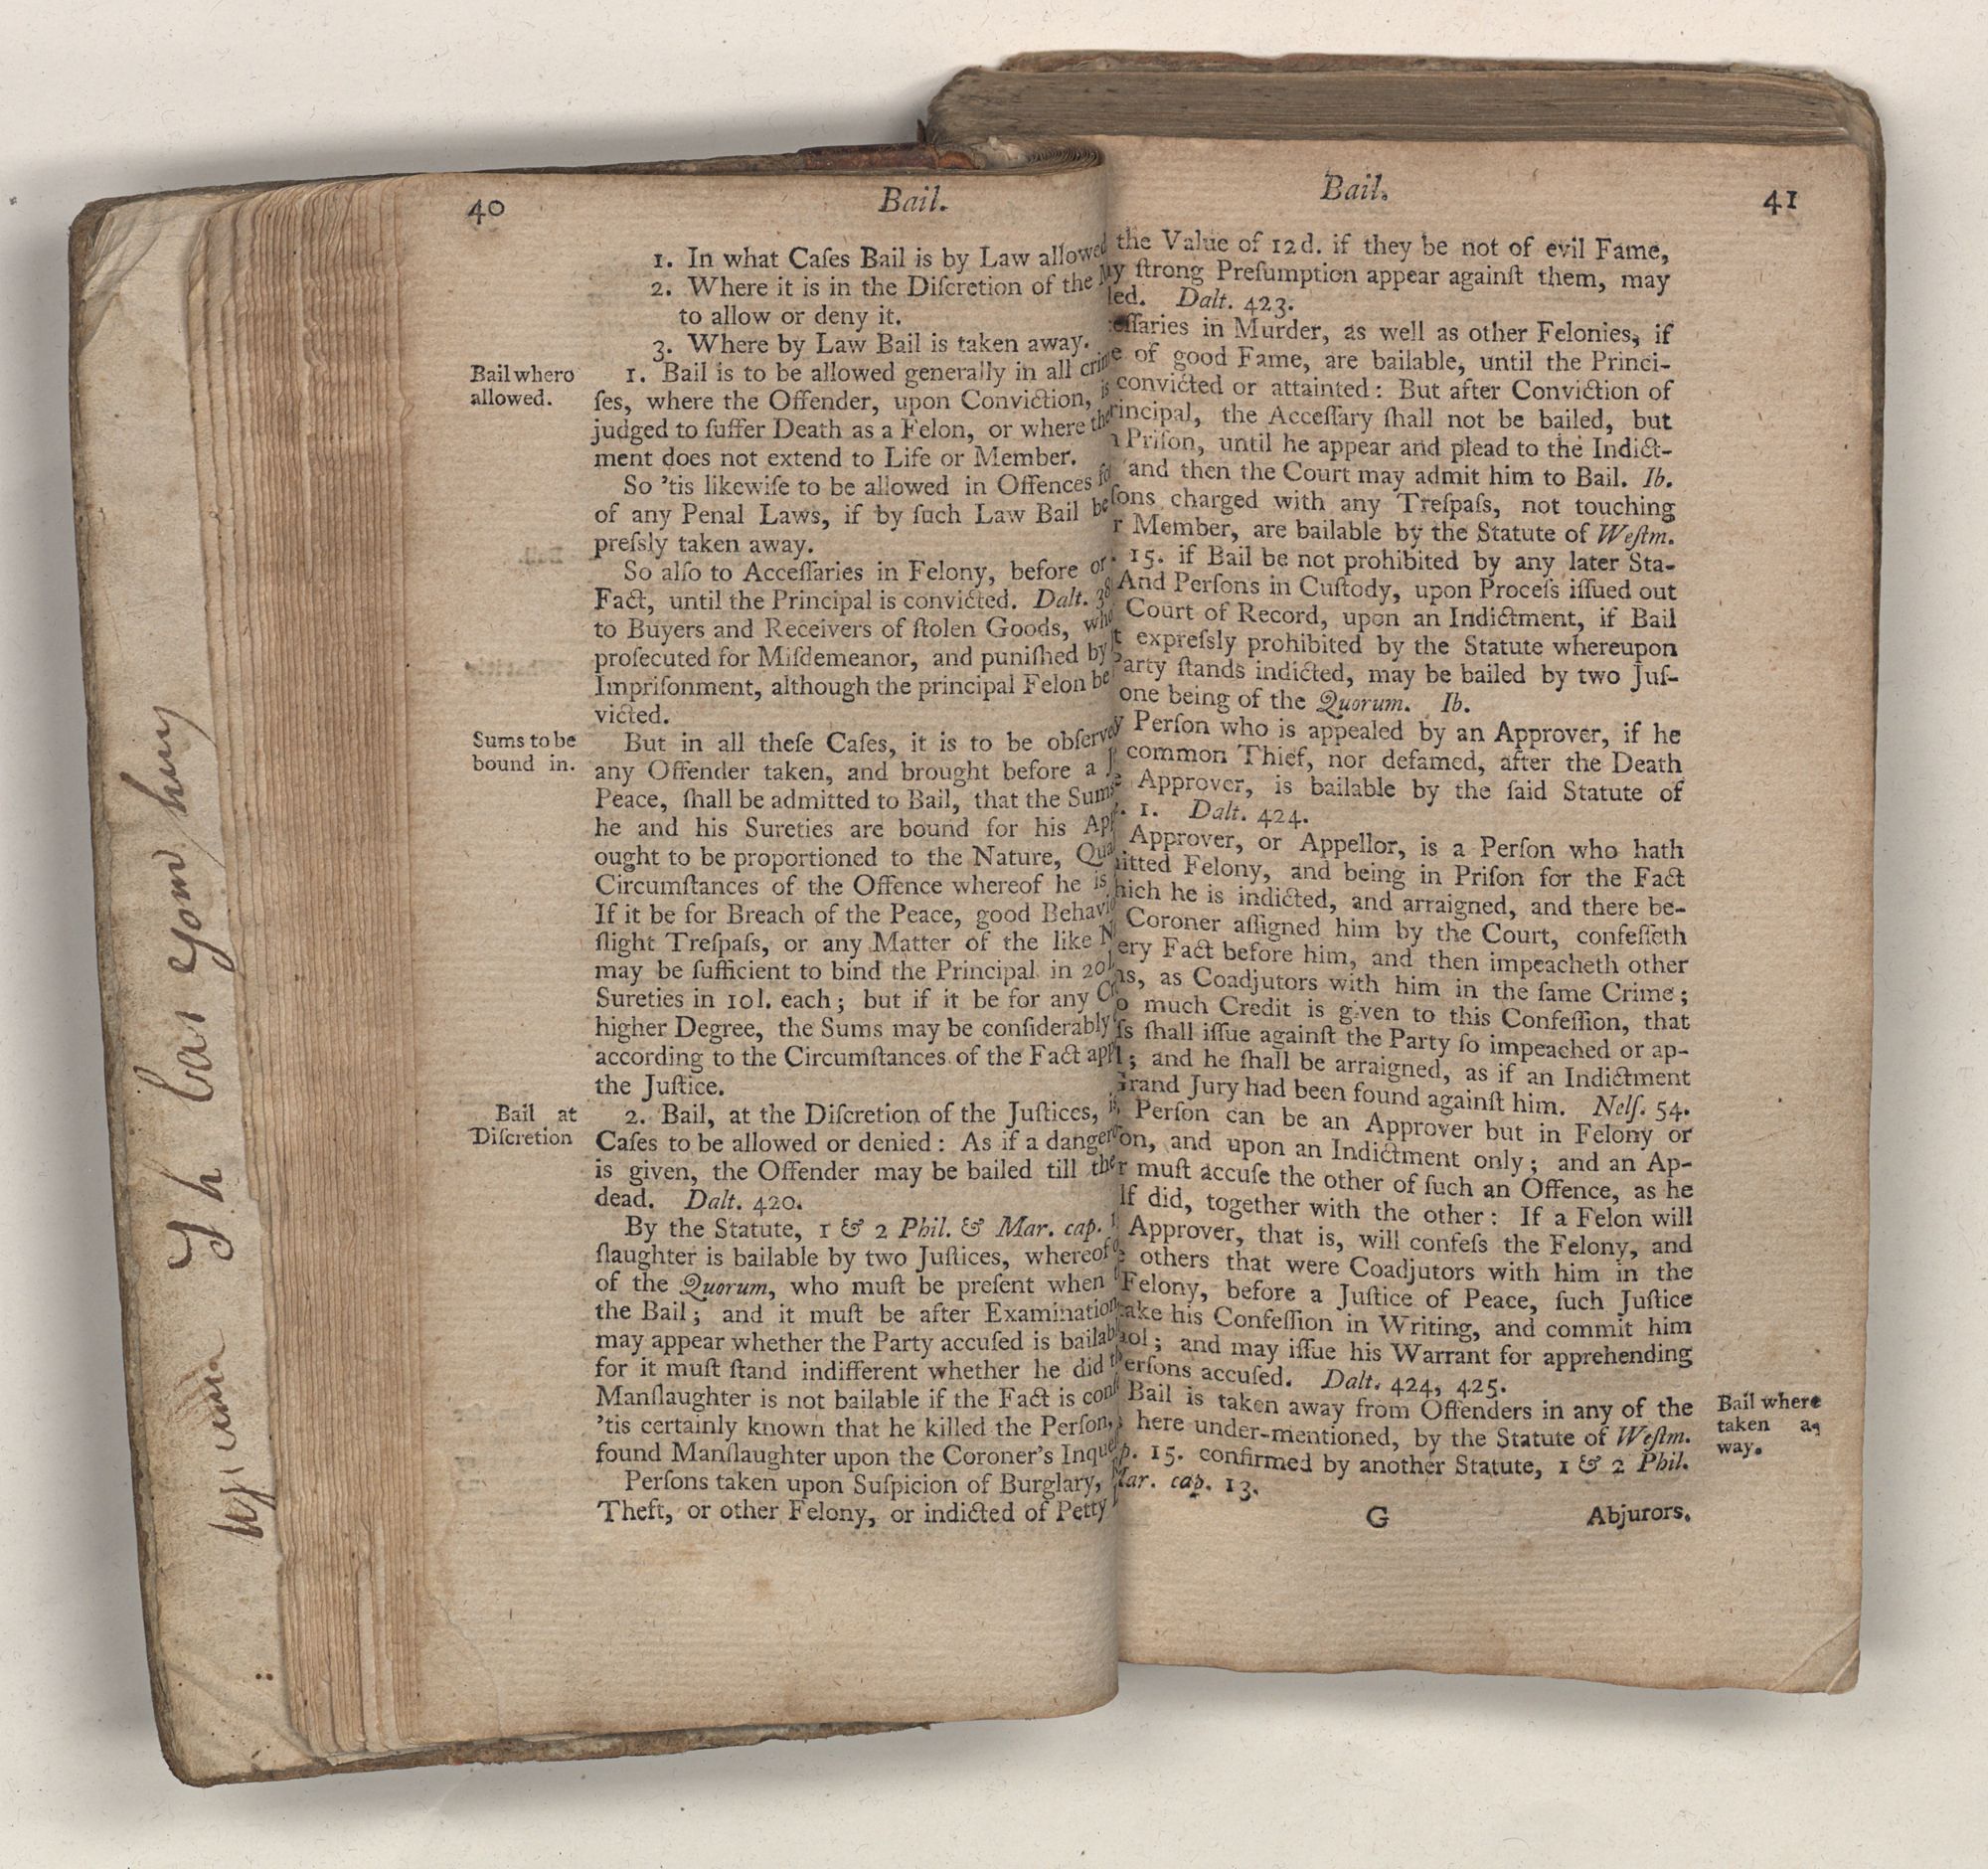 40
Bail.
1. In what Caſes Bail is by Law allowed
2. Where it is in the Diſcretion of the
to allow or deny it.
3. Where by Law Bail is taken away.
Bail where
allowed.
1. Bail is to be allowed generally in all
ſes, where the Offender, upon Conviction, is
judged to ſuffer Death as a Felon, or where the
ment does not extend to Life or Member.
So 'tis likewiſe to be allowed in Offences
of any Penal Laws, if by ſuch Law Bail be
preſsly taken away.
So alſo to Acceſſaries in Felony, before or
Fact, until the Principal is convicted. Dalt.
to Buyers and Receivers of ſtolen Goods, who
proſecuted for Miſdemeanor, and puniſhed by
Impriſonment, although the principal Felon be
victed.
Sums to be
bound in.
But in all theſe Caſes, it is to be obſerve
any Offender taken, and brought before a
Peace, ſhall be admitted to Bail, that the Sums
he and his Sureties are bound for his
ought to be proportioned to the Nature,
Circumſtances of the Offence whereof he is
If it be for Breach of the Peace, good Behavi
ſlight Treſpaſs, or any Matter of the like
may be ſufficient to bind the Principal in 20l.
Sureties in 10l. each; but if it be for any
higher Degree, the Sums may be conſiderably
according to the Circumſtances of the Fact
the Juſtice.
Bail at
Diſcretion
2. Bail, at the Diſcretion of the Juſtices,
Caſes to be allowed or denied: As if a danger
is given, the Offender may be bailed till the
dead. Dalt. 420.
By the Statute, 1 & 2 Phil. & Mar. cap.
ſlaughter is bailable by two Juſtices, whereof
of the Quorum, who muſt be preſent when
the Bail; and it muſt be after Examination
may appear whether the Party accuſed is bailab
for it muſt ſtand indifferent whether he did
Manſlaughter is not bailable if the Fact is
'tis certainly known that he killed the Perſon,
found Manſlaughter upon the Coroner's Inque
Perſons taken upon Suſpicion of Burglary,
Theft, or other Felony, or indicted of Petty
Bail.
41
the Value of 12d. if they be not of evil Fame,
ſtrong Preſumption appear againſt them, may
led. Dalt. 423.
eſſaries in Murder, as well as other Felonies, if
of good Fame, are bailable, until the Princi-
convicted or attainted: But after Conviction of
rincipal, the Acceſſary ſhall not be bailed, but
Priſon, until he appear and plead to the Indict-
and then the Court may admit him to Bail. Ib.
ſons charged with any Treſpaſs, not touching
r Member, are bailable by the Statute of Weſtm.
15. if Bail be not prohibited by any later Sta-
And Perſons in Cuſtody, upon Proceſs iſſued out
Court of Record, upon an Indictment, if Bail
expreſsly prohibited by the Statute whereupon
arty ſtands indicted, may be bailed by two Juſ-
one being of the Quorum. Ib.
y Perſon who is appealed by an Approver, if he
common Thief, nor defamed, after the Death
Approver, is bailable by the ſaid Statute of
1. Dalt. 424.
Approver, or Appellor, is a Perſon who hath
itted Felony, and being in Priſon for the Fact
hich he is indicted, and arraigned, and there be-
Coroner aſſigned him by the Court, confeſſeth
ery Fact before him, and then impeacheth other
ns, as Coadjutors with him in the ſame Crime;
o much Credit is given to this Confeſſion, that
ſs ſhall iſſue againſt the Party ſo impeached or ap-
; and he ſhall be arraigned, as if an Indictment
Grand Jury had been found againſt him. Nelſ. 54.
Perſon can be an Approver but in Felony or
on, and upon an Indictment only; and an Ap-
r muſt accuſe the other of ſuch an Offence, as he
lf did, together with the other: If a Felon will
Approver, that is, will confeſs the Felony, and
others that were Coadjutors with him in the
Felony, before a Juſtice of Peace, ſuch Juſtice
ake his Confeſſion in Writing, and commit him
aol; and may iſſue his Warrant for apprehending
erſons accuſed. Dalt. 424, 425.
Bail is taken away from Offenders in any of the
here under-mentioned, by the Statute of Weſtm.
p. 15. confirmed by another Statute, 1 & 2 Phil.
Mar. cap. 13.
Bail where
taken a-
way.
G
Abjurors.